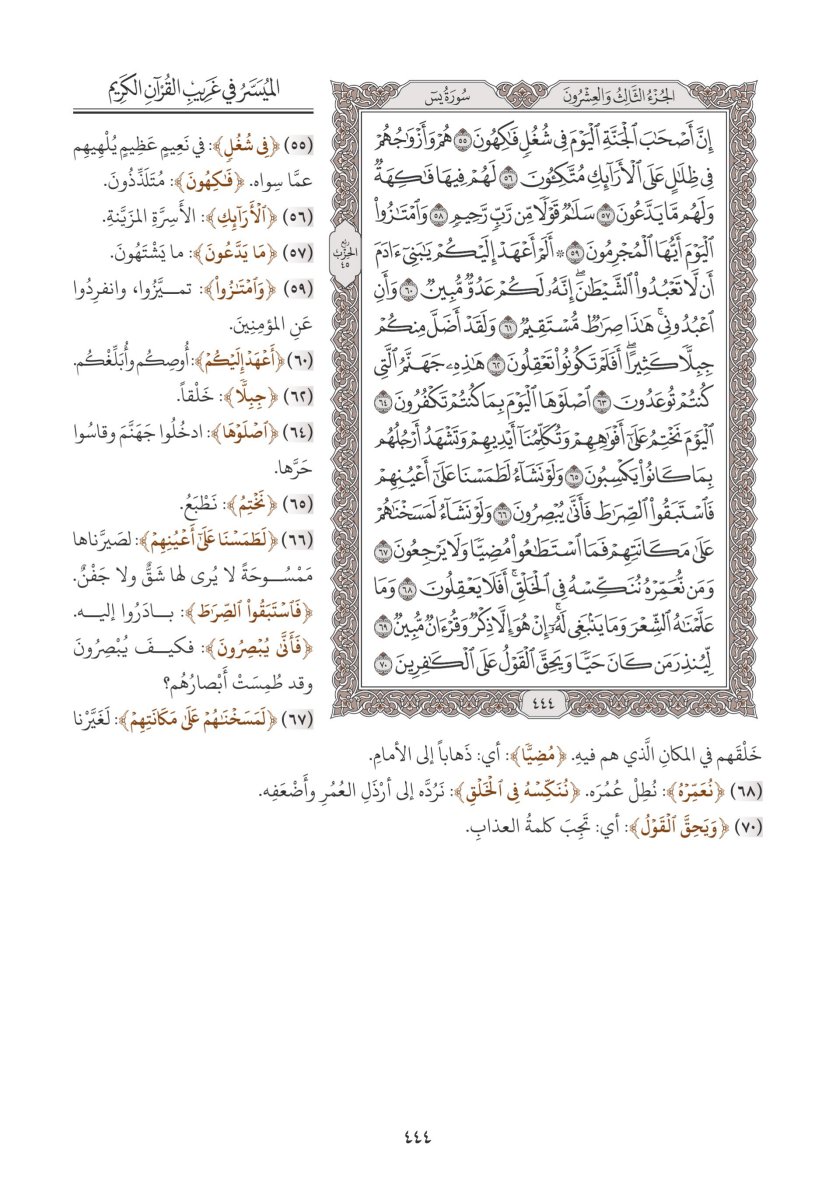 الجُزْءُ الثَّالِثُ وَالعِشْرُونَ
سُورَةُ يسٓ
إِنَّ أَصۡحَٰبَ ٱلۡجَنَّةِ ٱلۡيَوۡمَ فِي شُغُلٖ فَٰكِهُونَ ٥٥ هُمۡ وَأَزۡوَٰجُهُمۡ
فِي ظِلَٰلٍ عَلَى ٱلۡأَرَآئِكِ مُتَّكِـُٔونَ ٥٦ لَهُمۡ فِيهَا فَٰكِهَةٞ
وَلَهُم مَّا يَدَّعُونَ ٥٧ سَلَٰمٞ قَوۡلٗا مِّن رَّبّٖ رَّحِيمٖ ٥٨ وَٱمۡتَٰزُواْ
ٱلۡيَوۡمَ أَيُّهَا ٱلۡمُجۡرِمُونَ ٥٩ ۞ أَلَمۡ أَعۡهَدۡ إِلَيۡكُمۡ يَٰبَنِيٓ ءَادَمَ
أَن لَّا تَعۡبُدُواْ ٱلشَّيۡطَٰنَۖ إِنَّهُۥ لَكُمۡ عَدُوّٞ مُّبِينٞ ٦٠ وَأَنِ
ٱعۡبُدُونِيۚ هَٰذَا صِرَٰطٞ مُّسۡتَقِيمٞ ٦١ وَلَقَدۡ أَضَلَّ مِنكُمۡ
جِبِلّٗا كَثِيرًاۖ أَفَلَمۡ تَكُونُواْ تَعۡقِلُونَ ٦٢ هَٰذِهِۦ جَهَنَّمُ ٱلَّتِي
كُنتُمۡ تُوعَدُونَ ٦٣ ٱصۡلَوۡهَا ٱلۡيَوۡمَ بِمَا كُنتُمۡ تَكۡفُرُونَ ٦٤
ٱلۡيَوۡمَ نَخۡتِمُ عَلَىٰٓ أَفۡوَٰهِهِمۡ وَتُكَلِّمُنَآ أَيۡدِيهِمۡ وَتَشۡهَدُ أَرۡجُلُهُم
بِمَا كَانُواْ يَكۡسِبُونَ ٦٥ وَلَوۡ نَشَآءُ لَطَمَسۡنَا عَلَىٰٓ أَعۡيُنِهِمۡ
فَٱسۡتَبَقُواْ ٱلصِّرَٰطَ فَأَنَّىٰ يُبۡصِرُونَ ٦٦ وَلَوۡ نَشَآءُ لَمَسَخۡنَٰهُمۡ
عَلَىٰ مَكَانَتِهِمۡ فَمَا ٱسۡتَطَٰعُواْ مُضِيّٗا وَلَا يَرۡجِعُونَ ٦٧
وَمَن نُّعَمِّرۡهُ نُنَكِّسۡهُ فِي ٱلۡخَلۡقِۚ أَفَلَا يَعۡقِلُونَ ٦٨ وَمَا
عَلَّمۡنَٰهُ ٱلشِّعۡرَ وَمَا يَنۢبَغِي لَهُۥٓۚ إِنۡ هُوَ إِلَّا ذِكۡرٞ وَقُرۡءَانٞ مُّبِينٞ ٦٩
لِّيُنذِرَ مَن كَانَ حَيّٗا وَيَحِقَّ ٱلۡقَوۡلُ عَلَى ٱلۡكَٰفِرِينَ ٧٠
٤٤٤
ربع
الحزب
٤٥
المُيَسَّرُ في غَرِيبِ القُرْآنِ الكَرِيمِ
(٥٥) ﴿فِي شُغُلٖ﴾: في نَعِيمٍ عَظِيمٍ يُلْهِيهِم
عمَّا سِواه. ﴿فَٰكِهُونَ﴾: مُتَلَذِّذُونَ.
(٥٦) ﴿ٱلۡأَرَآئِكِ﴾: الأَسِرَّةِ المُزَيَّنةِ.
(٥٧) ﴿مَا يَدَّعُونَ﴾: ما يَشْتَهُونَ.
(٥٩) ﴿وَٱمۡتَٰزُواْ﴾: تميَّزُوا، وانفرِدُوا
عَنِ المؤمِنِينَ.
(٦٠) ﴿أَعۡهَدۡ إِلَيۡكُمۡ﴾: أُوصِكُم وأُبَلِّغْكُم.
(٦٢) ﴿جِبِلّٗا﴾: خَلْقاً.
(٦٤) ﴿ٱصۡلَوۡهَا﴾: ادخُلُوا جَهَنَّمَ وقاسُوا
حَرَّها.
(٦٥) ﴿نَخۡتِمُ﴾: نَطْبَعُ.
(٦٦) ﴿لَطَمَسۡنَا عَلَىٰٓ أَعۡيُنِهِمۡ﴾: لصَيَّرناها
مَمْسُوحَةً لا يُرى لها شَقٌّ ولا جَفْنٌ.
﴿فَٱسۡتَبَقُواْ ٱلصِّرَٰطَ﴾: بادَرُوا إليه.
﴿فَأَنَّىٰ يُبۡصِرُونَ﴾: فكيفَ يُبْصِرُونَ
وقد طُمِسَتْ أَبْصارُهُم؟
(٦٧) ﴿لَمَسَخۡنَٰهُمۡ عَلَىٰ مَكَانَتِهِمۡ﴾: لَغَيَّرْنا
خَلْقَهم في المكانِ الَّذي هم فيهِ. ﴿مُضِيّٗا﴾: أي: ذَهاباً إلى الأمامِ.
(٦٨) ﴿نُعَمِّرۡهُ﴾: نُطِلْ عُمُرَه. ﴿نُنَكِّسۡهُ فِي ٱلۡخَلۡقِ﴾: نَرُدَّه إلى أرْذَلِ العُمُرِ وأَضْعَفِه.
(٧٠) ﴿وَيَحِقَّ ٱلۡقَوۡلُ﴾: أي: تَجِبَ كلمةُ العذابِ.
٤٤٤